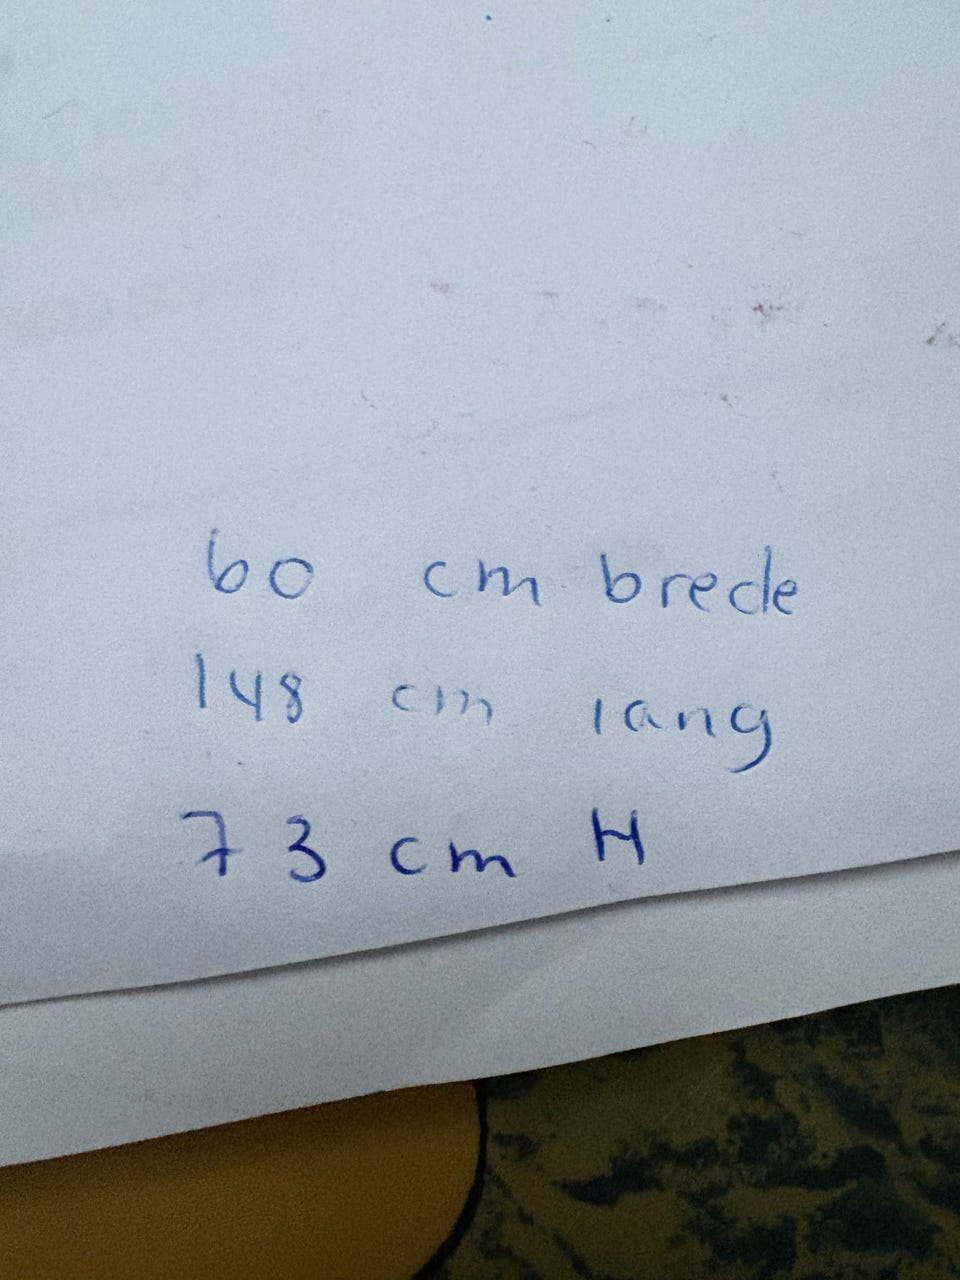 60 cm brede
148 cm lang
73 cm H